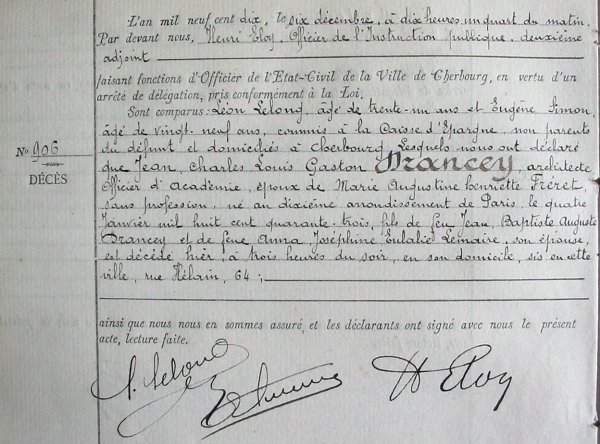 L'an mil neuf cent dix, le six décembre, à dix heures un quart du matin.
Par devant nous, Henri Eloy, Officier de l'Instruction publique, deuxième
adjoint
faisant fonctions d'Officier de l'Etat-Civil de la Ville de Cherbourg, en vertu d'un
arrêté de délégation, pris conformément à la Loi,
Sont comparus: Léon Lelong, âgé de trente-un ans et Eugène Simon,
âgé de vingt-neuf ans, commis à la Caisse d'Epargne, non parents
Nº 906
du défunt et domiciliés à Cherbourg. Lesquels nous ont déclaré
DÉCÈS
que Jean, Charles Louis Gaston Drancey, architecte
Officier d'Académie, époux de Marie Augustine henriette Fréret,
sans profession, né au dixième arrondissement de Paris, le quatre
Janvier mil huit cent quarante-trois, fils de feu Jean, Baptiste Auguste
Drancey et de feue Anna Joséphine Eulalie Lemaire, son épouse,
est décédé hier à trois heures du soir, en son domicile, sis en cette
ville, rue Hélain, 64;
ainsi que nous nous en sommes assuré, et les déclarants ont signé avec nous le présent
acte, lecture faite.
L. Lelong E. Simon H Eloy